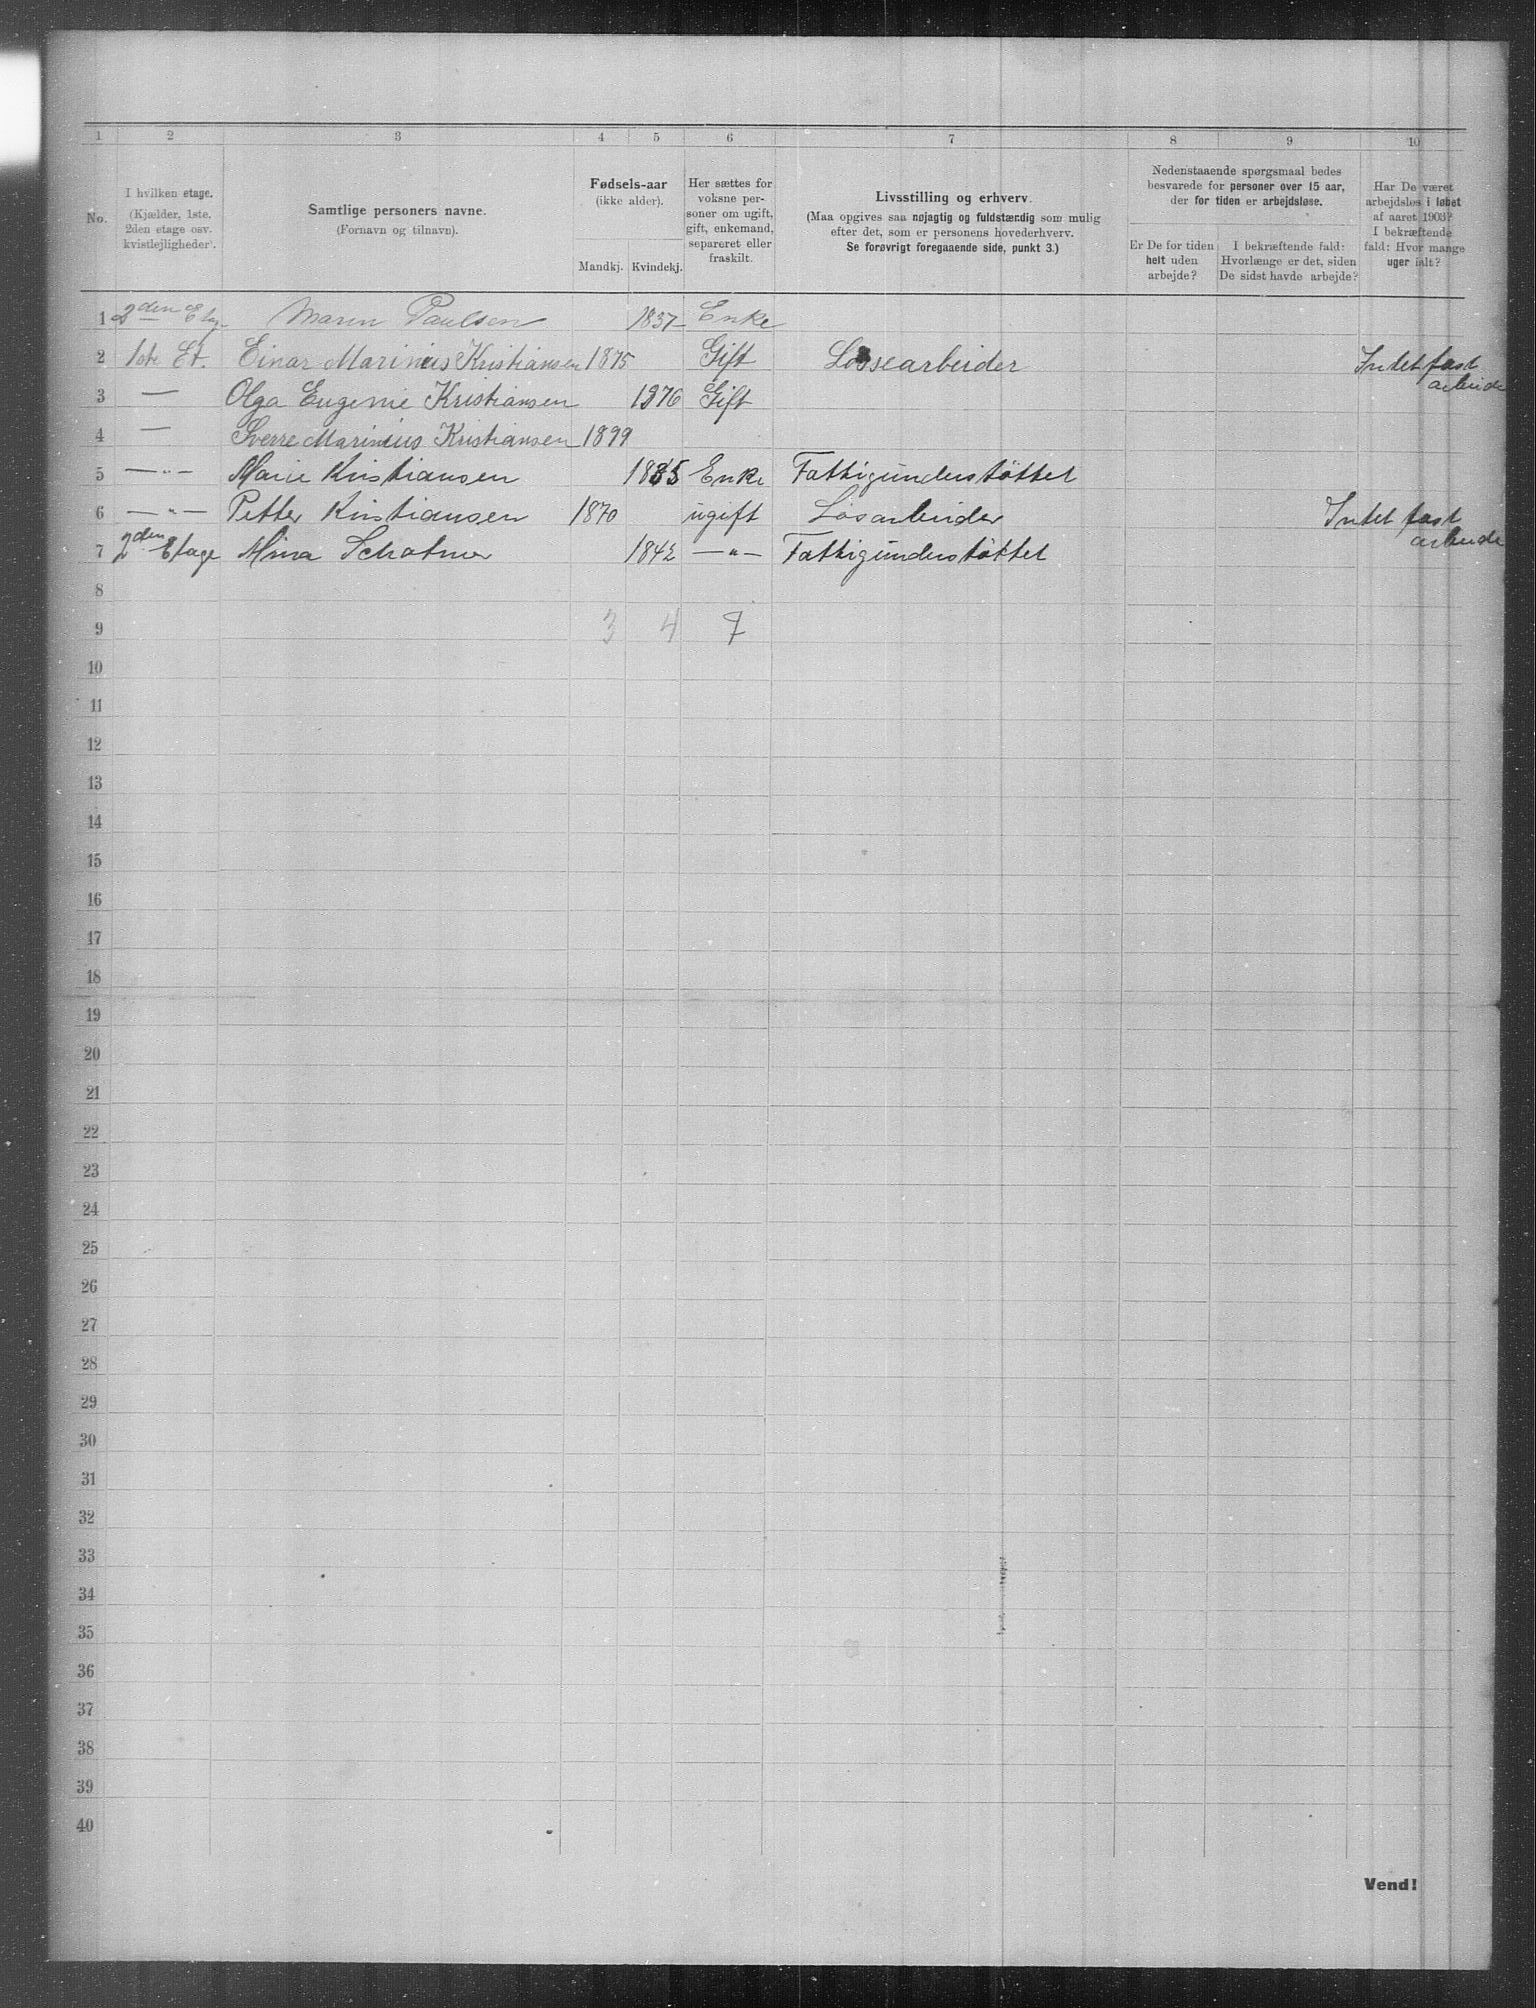 1 2 3 4 5 6 7 8 9 10
No.
I hvilken etage.
(Kjælder, 1ste.
2den etage osv.
kvistlejligheder).
Samtlige personers navne.
(Fornavn og tilnavn).
Fødsels-aar
(ikke alder).
Mandkj. Kvindekj.
Her sættes for
voksne per-
soner om ugift,
gift, enkemand,
separeret eller
fraskilt.
Livsstilling og erhverv.
(Maa opgives saa nøjagtig og fuldstærdig som mulig
efter det, som er personens hovederhverv.
Se forøvrigt foregaaende side, punkt 3.)
Nedenstaaende spørgsmaal bedes
besvarede for personer over 15 aar,
der for tiden er arbejdsløse.
Er De for tiden
helt uden
arbejde?
I bekræftende fald:
Hvorlænge er det, siden
De sidst havde arbejde?
Har De været
arbejdsløs i løbet
af aaret 1903?
I bekræftende
fald: Hvor mange
uger ialt?
1 2den Etag. Maren Paulsen 1837 Enke
2 1ste Et. Einar Marinius Kristiansen 1875 Gift Løssearbeider Intet fast arbeide
3 — Olga Eugenie Kristiansen 1876 Gift
4 — Sverre Marinius Kristiansen 1899
5 —"— Marie Kristiansen 1835 Enke Fattigunderstøttet
6 —"— Petter Kristiansen 1870 ugift Løsarbeider Intet fast arbeide
7 2den Etage Mina 1842 —"— Fattigunderstøttet
8
9 3 4 7
10
11
12
13
14
15
16
17
18
19
20
21
22
23
24
25
26
27
28
29
30
31
32
33
34
35
36
37
38
39
40
Vend!